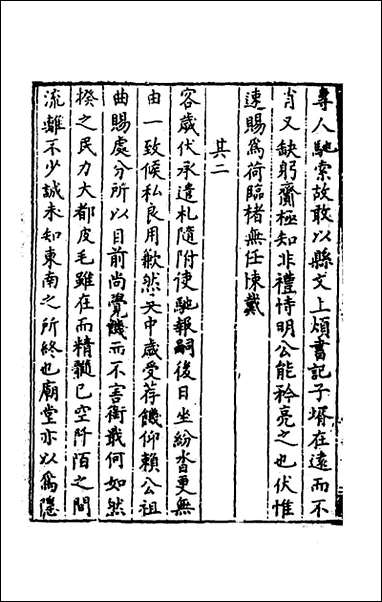 專人馳索故敢以縣文上煩書記子壻在遠而不
肖又缺躬齎極知非禮恃明公能矜亮之也伏惟
速賜爲荷臨楮無任悚戴
其二
客歲伏承遺札隨附使馳報嗣後日坐紛沓更無
由一致候私良用歉然天中歲受荐饑仰賴公祖
曲賜處分所以目前尚覺饑而不害銜戢何如然
揆之民力大都皮毛雖在而精髓已空阡陌之間
流離不少誠未知東南之所終也廟堂亦以爲隱